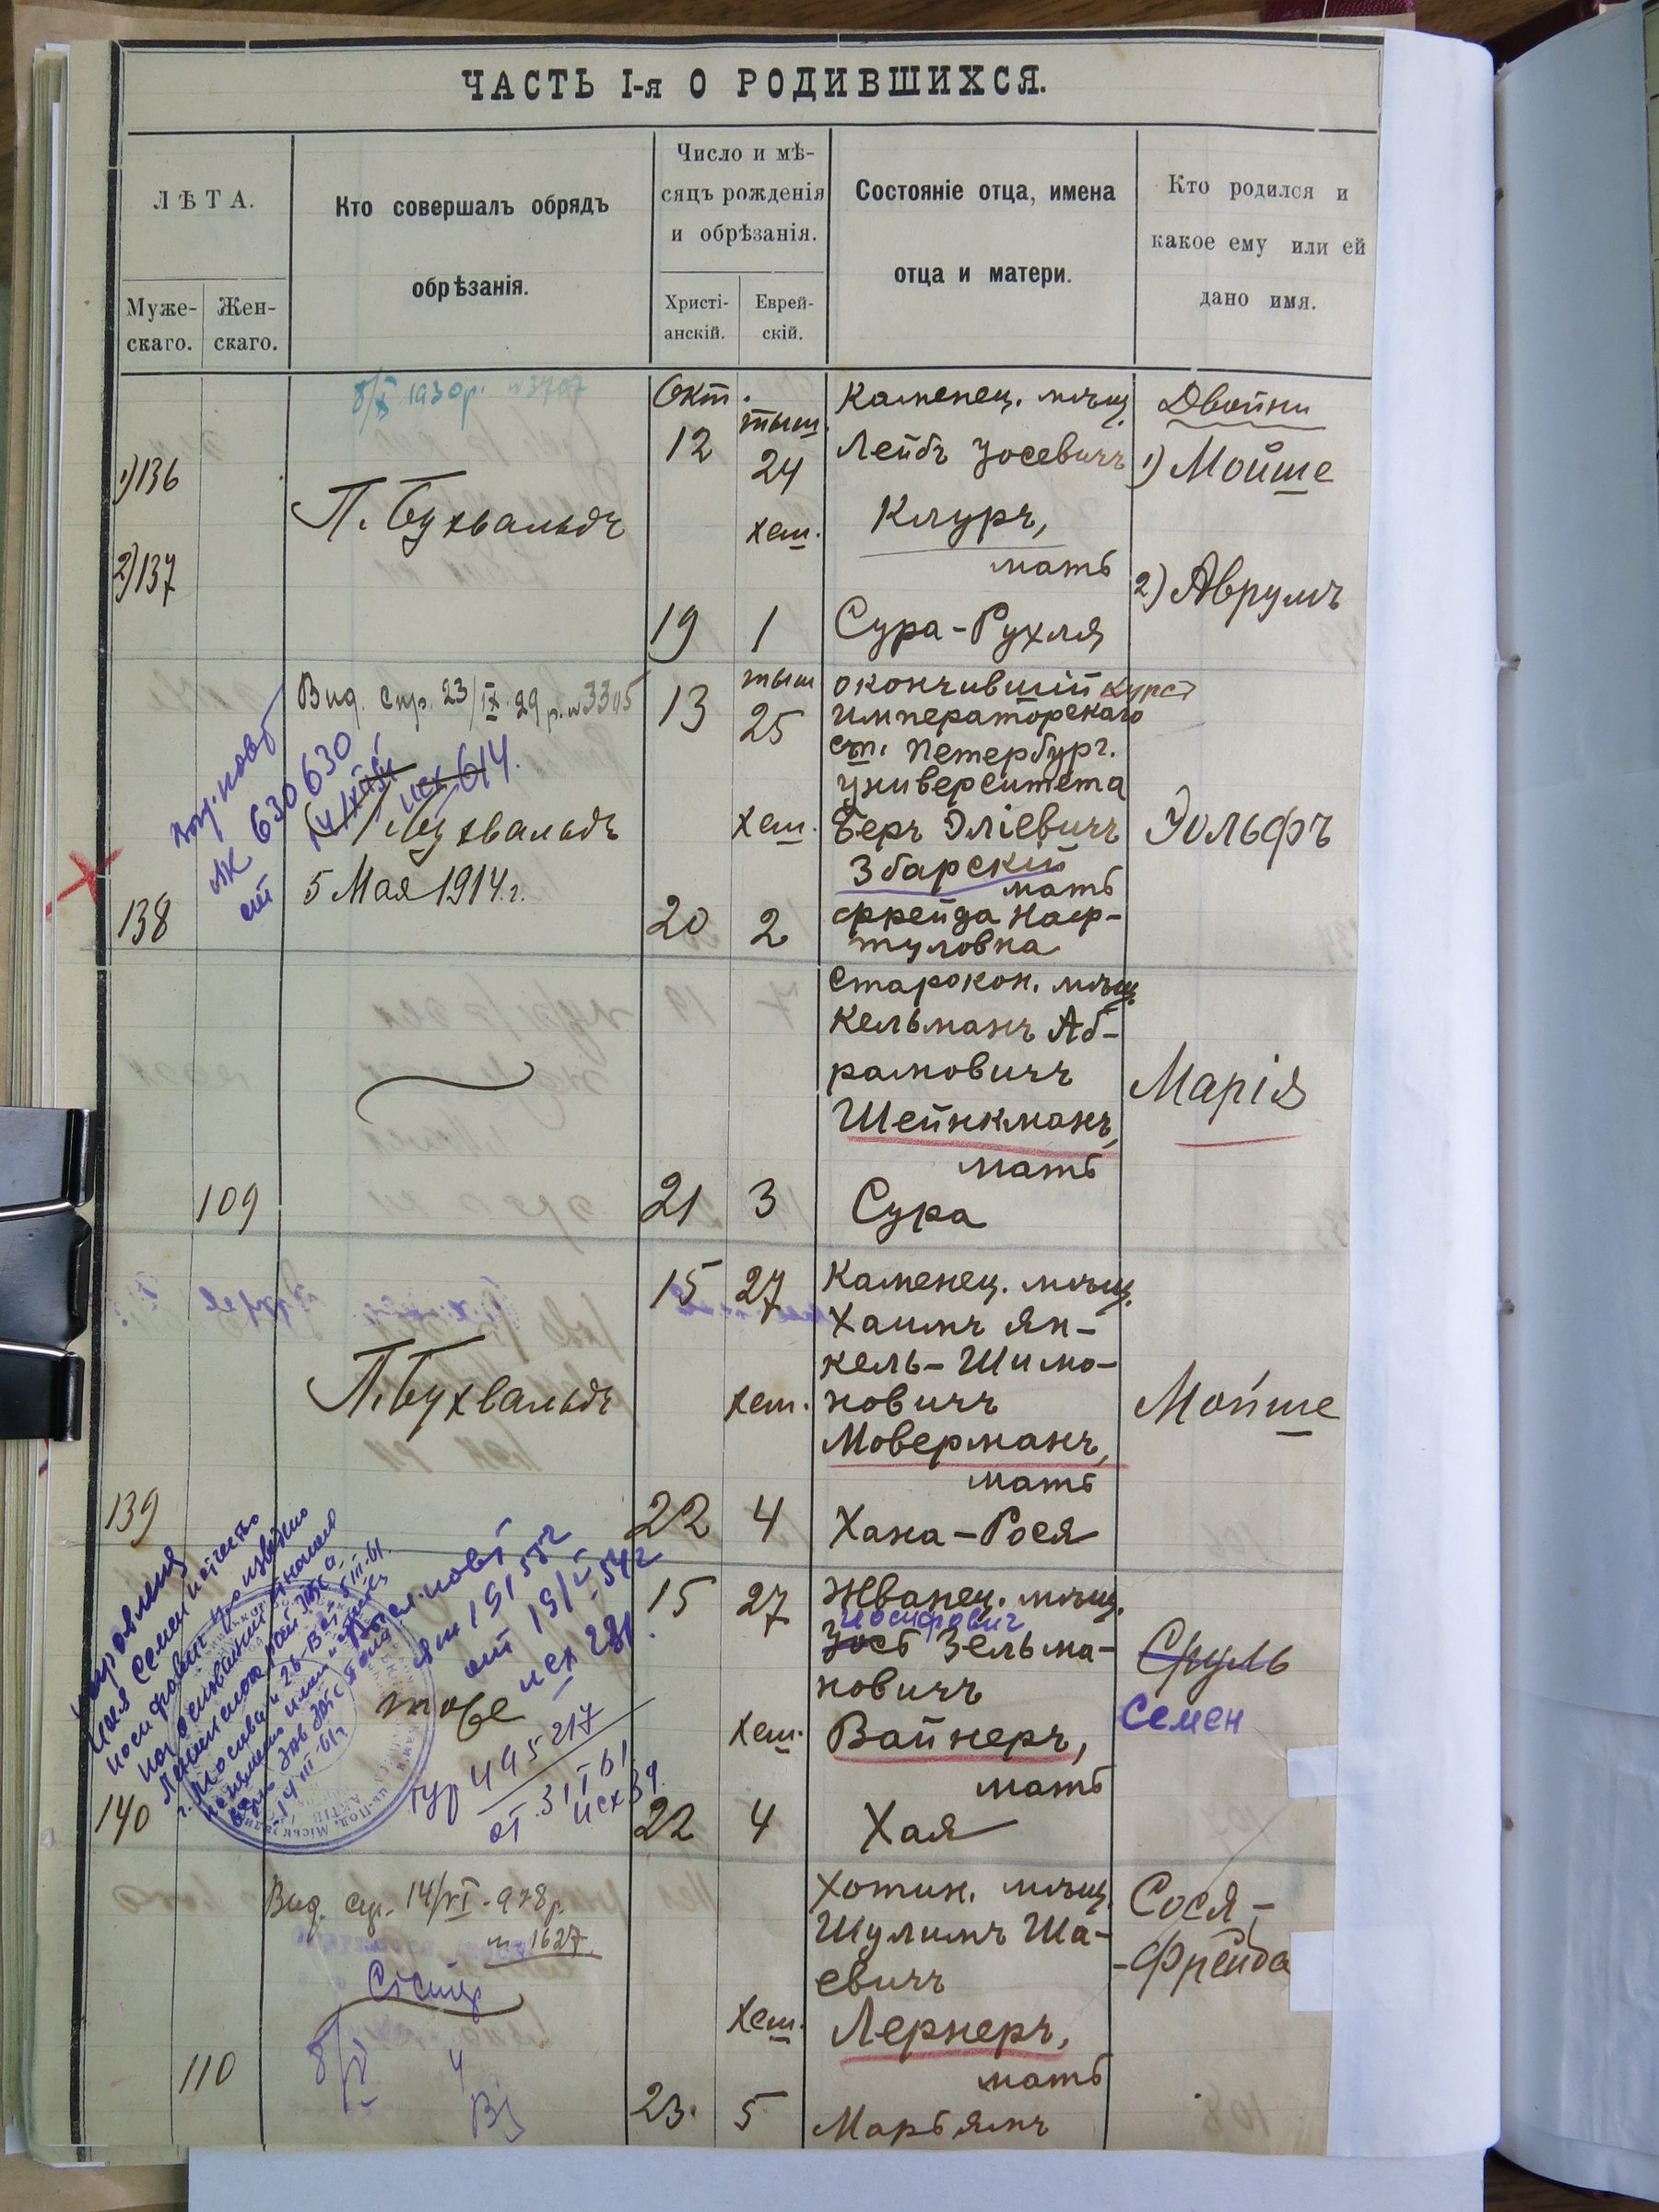 ЧАСТЬ I-я О РОДИВШИХСЯ.
ЛѢТА.
Муже-
скаго.
Жен-
скаго.
Кто совершалъ обрядъ
обрѣзанія.
Число и мѣ-
сяцъ рожденія
и обрѣзанія.
Христі-
анскій.
Еврей-
скій.
Состояніе отца, имена
отца и матери.
Кто родился и
какое ему или ей
дано имя.
8/X 1930 р. №3707
1) 136
2) 137
П. Бухвальдъ
Окт.
12
тыш.
24
хеш.
19
1
Каменец. мѣщ.
Лейбъ Іосевичъ
Клуръ,
мать
Сура-Рухля
Двойни
1) Мойше
2) Аврумъ
Вид. Спр. 23/IX 29 р. №3305
630630
исх 614.
138
П. Бухвальдъ
5 Мая 1914 г.
13
тыш
25
хеш.
20
2
окончившій курсъ
императорскаго
ст. Петербург.
университета
Беръ Эліевичъ
Збарскій
мать
Фрейда Наф-
туловна
Эольфъ
109
21
3
Старокон. мѣщ.
Кельманъ Аб-
рамовичъ
Шейнкманъ,
мать
Сура
Марія
139
П. Бухвальдъ
15
27
хеш.
22
4
Каменец. мѣщ.
Хаимъ Ян-
кель-Шимо-
новичъ
Моверманъ,
мать
Хана-Рося
Мойше
140
тоже
от 19/V 54 г
исх 281
495217
от 31 I 61
исх 39
15
27
хеш.
22
4
Жванец. мѣщ.
Иосифович
Іось Зельма-
новичъ
Вайнеръ,
мать
Хая
Сруль
Семен
110
Вид. спр. 14/VI-928 р.
№ 1627
23.
хеш.
5
Хотин. мѣщ.
Шулимъ Ша-
евичъ
Лернеръ,
мать
Марьямъ
Сося-
-Фрейда